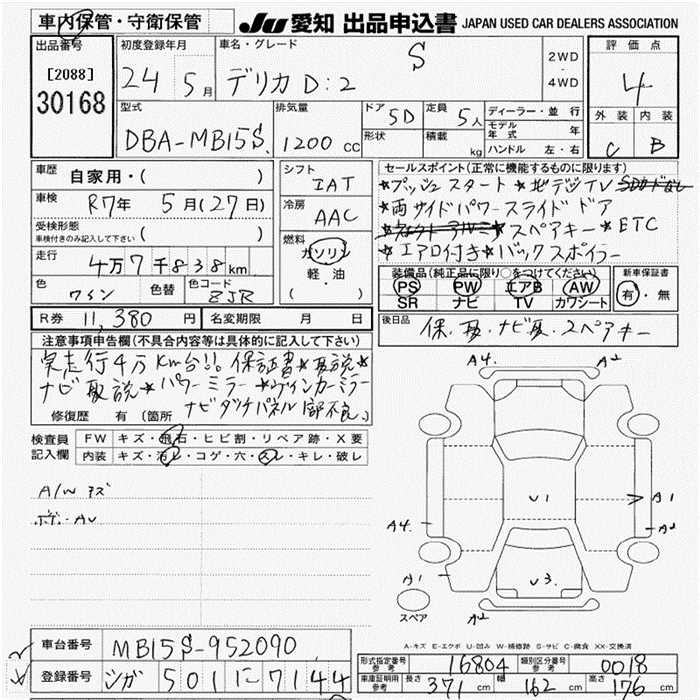 車内保管・守衛保管
JU 愛知 出品申込書 JAPAN USED CAR DEALERS ASSOCIATION
出品番号 初度登録年月 車名・グレード S 2WD・4WD 評価点
[2088] 24 5月 デリカD:2 4
30168 外装 内装
型式 排気量 ドア 5D 定員 5人 ディーラー・並行 C B
DBA-MB15S 1200cc 形状 積載 kg モデル年式 年
ハンドル 左・右
車歴 自家用・( ) シフト IAT セールスポイント(正常に機能するものに限ります)
車検 R7年 5月(27日) 冷房 AAC ★プッシュスタート ★地デジTV
★両サイドパワースライドドア
受検形態 車検付きのみ記入して下さい ( ) ★スペアキー ★ETC
走行 4万7千838km 燃料 ガソリン・軽油 ( ) ★エアロ付き ★バックスポイラー
色 ワイン 色替 色コード ZJR 装備品(純正品に限り○をつけてください) 新車保証書
PS PW エアB AW 有・無
SR ナビ TV カワシート
R券 11,380円 名変期限 月 日 後日品 保、取、ナビ取、スペアキー
注意事項申告欄(不具合内容等は具体的に記入して下さい)
実走行4万km台!! 保証書★取説★
ナビ取説★パワーミラー★ウィンカーミラー
ナビタッチパネル1部不良、
修復歴 有(箇所
検査員記入欄 FW キズ・飛石・ヒビ割・リペア跡・X要
内装 キズ・汚レ・コゲ・穴・スレ・キレ・破レ
A/Wキズ
A4. A2
U1 A1
A4. A2
A1 U3.
スペア A2
A-キズ E-エクボ U-凹み W-補修跡 S-サビ C-腐食 XX-交換済
車台番号 MB15S-952090
登録番号 シガ 501 に 7144
形式指定番号 参考 16804 類別区分番号 参考 0018
車庫証明用 参考 長さ 371cm 幅 162cm 高さ 176cm